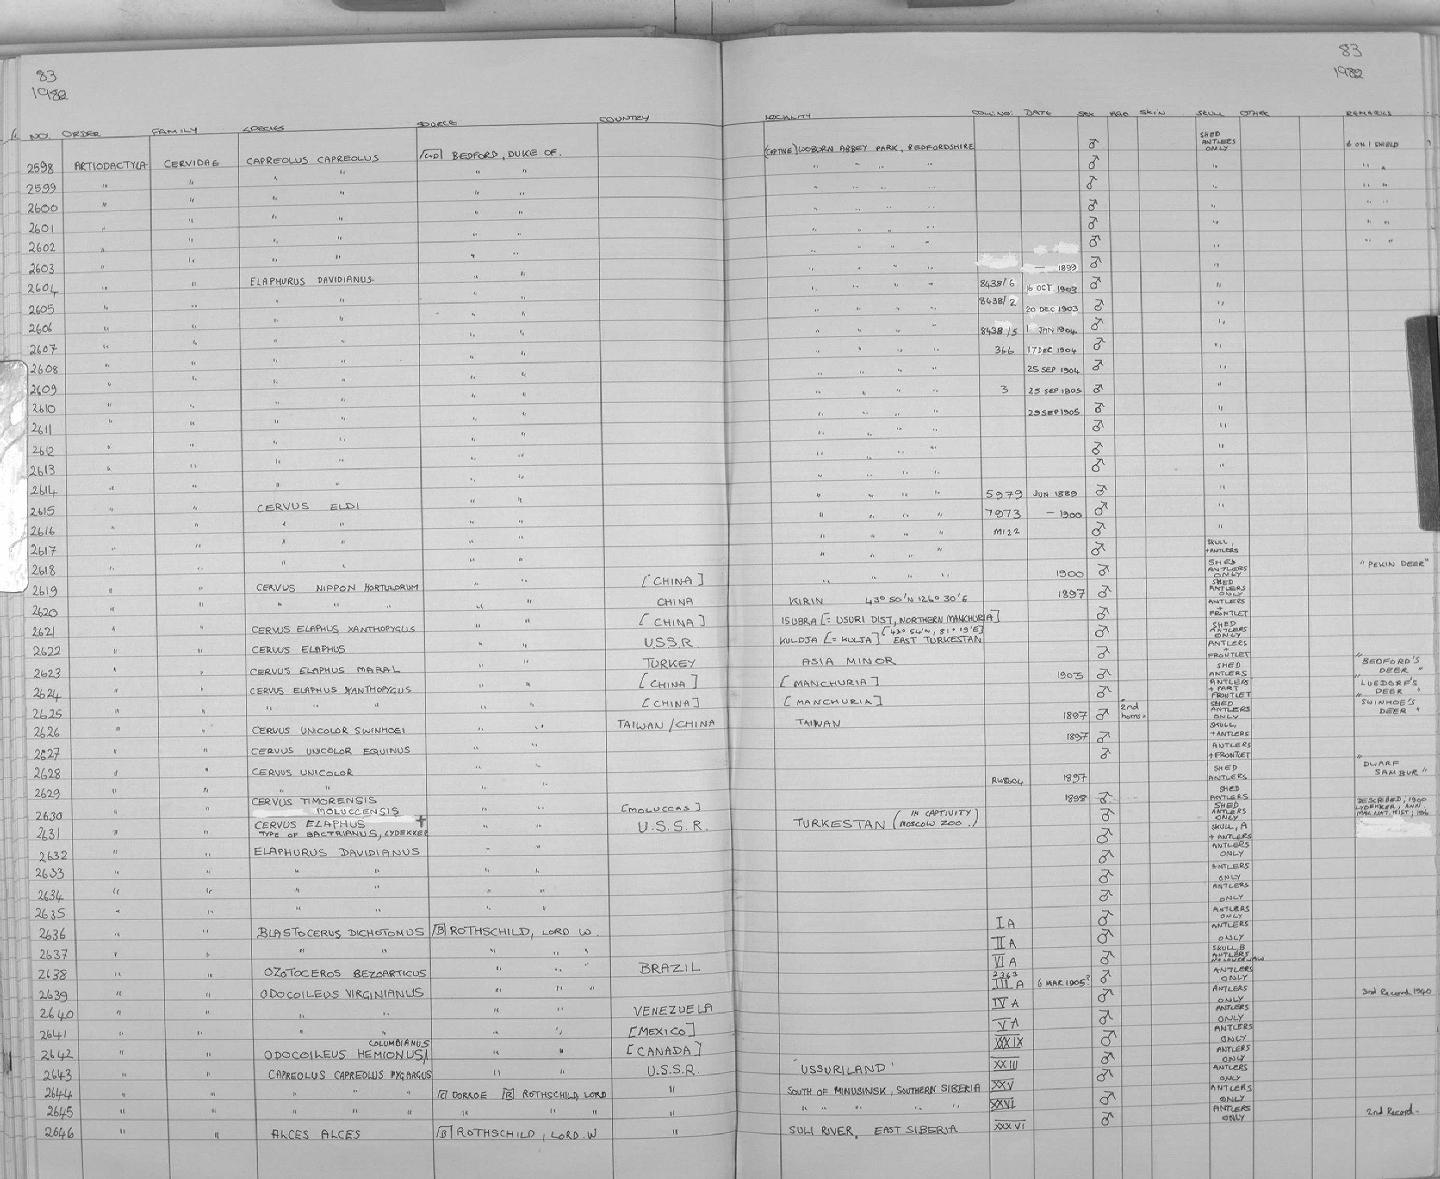 83
1982
83
1982
NO. ORDER FAMILY SPECIES SOURCE COUNTRY LOCALITY COLL.NO. DATE SEX AGE SKIN SKULL OTHER REMARKS
2598 ARTIODACTYLA CERVIDAE CAPREOLUS CAPREOLUS BEDFORD, DUKE OF. (CAPTIVE) WOBURN ABBEY PARK, BEDFORDSHIRE ♂ SHED ANTLERS ONLY 6 ON 1 SHIELD
2599 " " " " " " " " " " ♂ " " "
2600 " " " " " " " " " " ♂ " " "
2601 " " " " " " " " " " ♂ " " "
2602 " " " " " " " " " " ♂ " " "
2603 " " " " " " " " " " ♂ " " "
2604 " " ELAPHURUS DAVIDIANUS " " " " " " — 1899 ♂ "
2605 " " " " " " " " " " 8438/6 16 OCT 1903 ♂ "
2606 " " " " " " " " " " 8438/2 20 DEC 1903 ♂ "
2607 " " " " " " " " " " 8438/5 1 JAN 1904 ♂ "
2608 " " " " " " " " " " 366 17 DEC 1904 ♂ "
2609 " " " " " " " " " " 25 SEP 1904 ♂ "
2610 " " " " " " " " " " 3 25 SEP 1905 ♂ "
2611 " " " " " " " " " " 29 SEP 1905 ♂ "
2612 " " " " " " " " " " ♂ "
2613 " " " " " " " " " " ♂ "
2614 " " " " " " " " " " ♂ "
2615 " " CERVUS ELDI " " " " " " 5979 JUN 1889 ♂ "
2616 " " " " " " " " " " 7973 — 1900 ♂ "
2617 " " " " " " " " " " M122 ♂ "
2618 " " " " " " " " " " ♂ SKULL, + ANTLERS
2619 " " CERVUS NIPPON HORTULORUM " " [CHINA] " " " " 1900 ♂ SHED ANTLERS ONLY "PEKIN DEER"
2620 " " " " " " " CHINA KIRIN 43° 50'N 126° 30'E 1897 ♂ SHED ANTLERS ONLY
2621 " " CERVUS ELAPHUS XANTHOPYGUS " " [CHINA] ISUBRA [= USURI DIST, NORTHERN MANCHURIA] ♂ ANTLERS + FRONTLET
2622 " " CERVUS ELAPHUS " " U.S.S.R KULDJA [= KULJA] [43° 54'N, 81° 19'E] EAST TURKESTAN ♂ SHED ANTLERS ONLY
2623 " " CERVUS ELAPHUS MARAL " " TURKEY ASIA MINOR ♂ ANTLERS + FRONTLET
2624 " " CERVUS ELAPHUS XANTHOPYGUS " " [CHINA] [MANCHURIA] 1903 ♂ SHED ANTLERS "BEDFORD'S DEER"
2625 " " " " " " " [CHINA] [MANCHURIA] ♂ ANTLERS + PART FRONTLET "LUEDORF'S DEER"
2626 " " CERVUS UNICOLOR SWINHOEI " " TAIWAN/CHINA TAIWAN 1897 ♂ 2nd horns SHED ANTLERS ONLY "SWINHOE'S DEER"
2627 " " CERVUS UNICOLOR EQUINUS " " 1897 ♂ SKULL, + ANTLERS
2628 " " CERVUS UNICOLOR " " ♂ ANTLERS + FRONTLET
2629 " " " " " " 1897 ♂ SHED ANTLERS "DWARF SAMBUR"
2630 " " CERVUS TIMORENSIS MOLUCCENSIS " " [MOLUCCAS] 1898 ♂ SHED ANTLERS
2631 " " CERVUS ELAPHUS † TYPE OF BACTRIANUS, LYDEKKER " " U.S.S.R. TURKESTAN (IN CAPTIVITY MOSCOW ZOO.) ♂ SHED ANTLERS ONLY DESCRIBED, 1900 LYDEKKER, ANN MAG. NAT. HIST;
2632 " " ELAPHURUS DAVIDIANUS " " ♂ SKULL, A + ANTLERS
2633 " " " " " " ♂ ANTLERS ONLY
2634 " " " " " " ♂ ANTLERS ONLY
2635 " " " " " " ♂ ANTLERS ONLY
2636 " " BLASTOCERUS DICHOTOMUS [B] ROTHSCHILD, LORD W. I A ♂ ANTLERS ONLY
2637 " " " " " " " II A ♂ ANTLERS ONLY
2638 " " OZOTOCEROS BEZOARTICUS " " " BRAZIL VI A ♂ SKULL, B ANTLERS NO LOWER JAW
2639 " " ODOCOILEUS VIRGINIANUS " " " 2263 III A 6 MAR 1905? ♂ ANTLERS ONLY 3rd Record 1940
2640 " " " " " " VENEZUELA IV A ♂ ANTLERS ONLY
2641 " " " " " " [MEXICO] V A ♂ ANTLERS ONLY
2642 " " ODOCOILEUS HEMIONUS COLUMBIANUS " " [CANADA] XXXIX ♂ ANTLERS ONLY
2643 " " CAPREOLUS CAPREOLUS PYGARGUS " " U.S.S.R. 'USSURILAND' XXIII ♂ ANTLERS ONLY
2644 " " " " " [C] DORROE [B] ROTHSCHILD, LORD " SOUTH OF MINUSINSK, SOUTHERN SIBERIA XXV ♂ ANTLERS ONLY
2645 " " " " " " " " " " " " " " XXVI ♂ ANTLERS ONLY
2646 " " ALCES ALCES [B] ROTHSCHILD, LORD. W " SULI RIVER, EAST SIBERIA XXXVI ♂ ANTLERS ONLY 2nd Record-